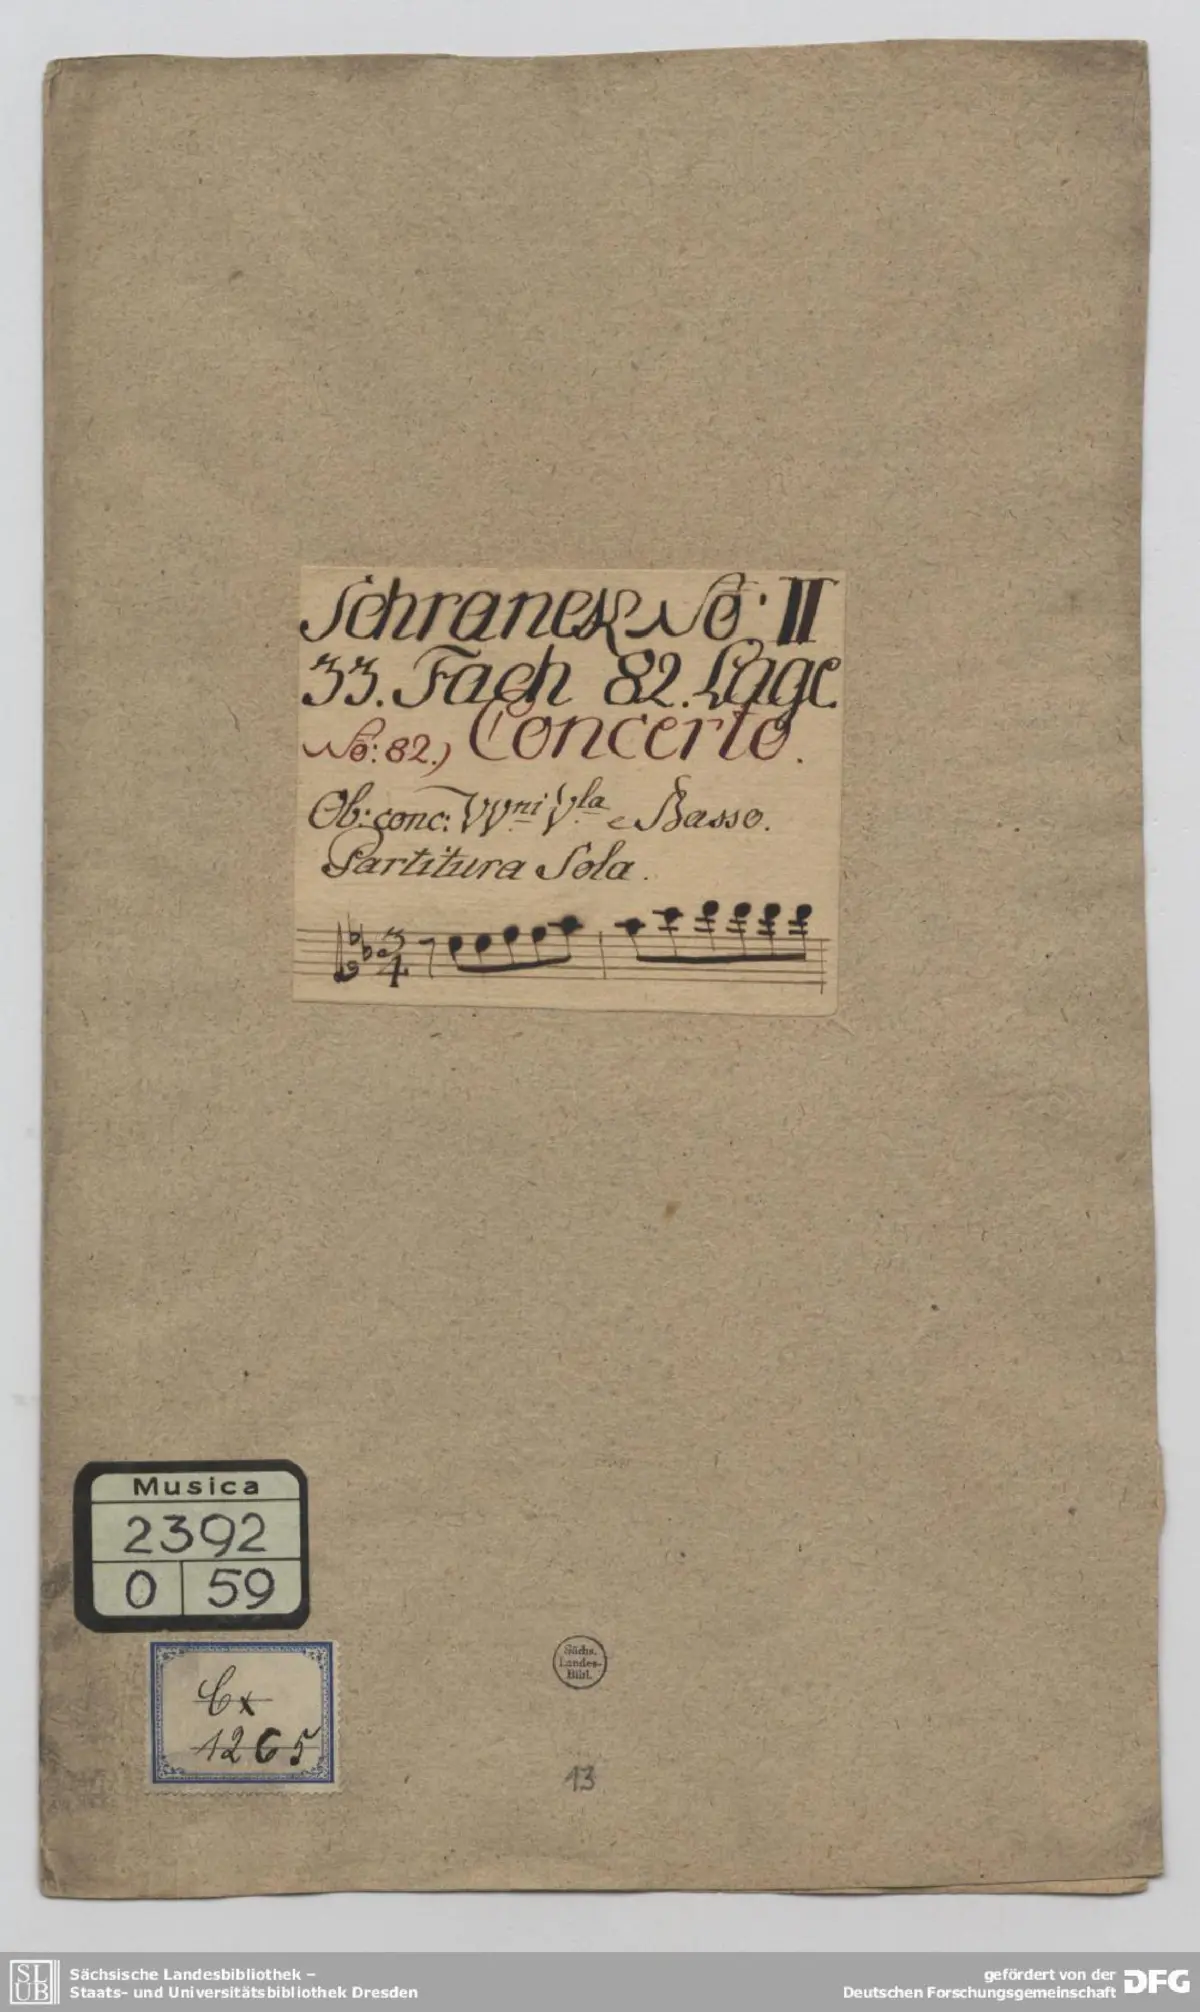 Schranck No: II
33. Fach 82. Lage.
No: 82.) Concerto.
Ob: conc: VVni Vla e Basso.
Partitura Sola.
3
4
Musica
2392
O 59
Cx
1265
Sächs.
Landes-
Bibl.
13
SLUB
Sächsische Landesbibliothek –
Staats- und Universitätsbibliothek Dresden
gefördert von der
Deutschen Forschungsgemeinschaft
DFG